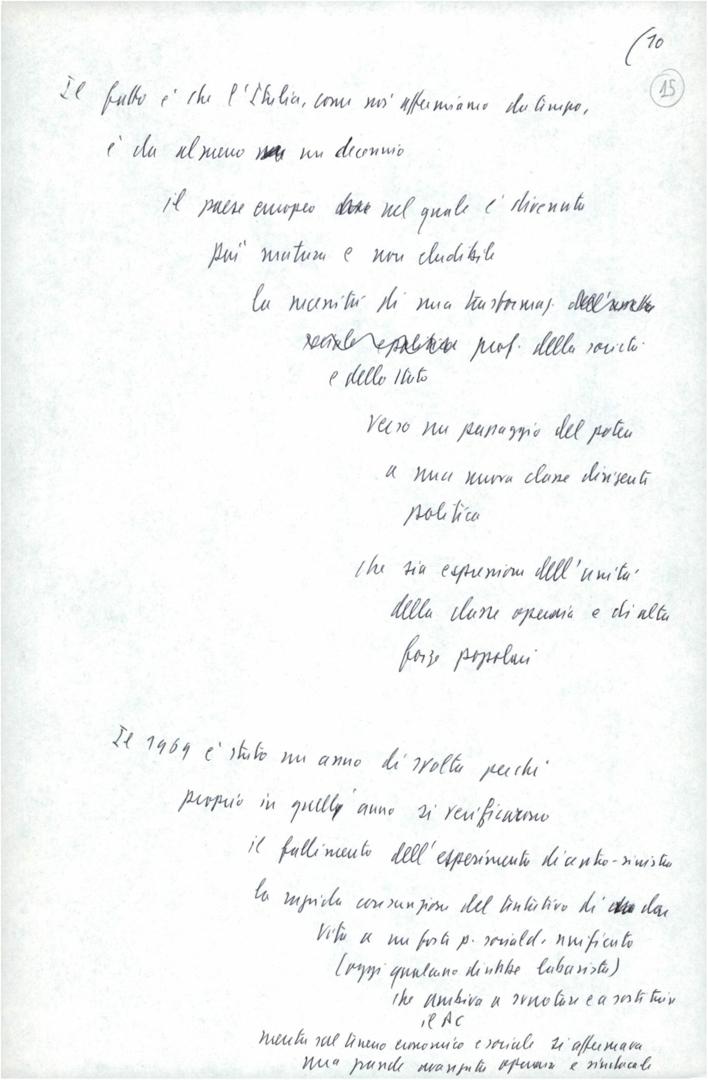 (10
15
Il fatto è che l'Italia, come noi affermiamo da tempo,
è da almeno un decennio
il paese europeo nel quale è divenuta
più matura e non eludibile
la necessità di una trasformaz. dell'assetto
sociale e politico prof. della società
e dello Stato
verso un passaggio del potere
a una nuova classe dirigente
politica
che sia espressione dell'unità
della classe operaia e di altre
forze popolari
Il 1969 è stato un anno di svolta perché
proprio in quell' anno si verificarono
il fallimento dell'esperimento di centro-sinistra
la rapida consunzione del tentativo di dar
vita a un forte p. sociald. unificato
(oggi qualcuno direbbe laburista)
che ambiva a svuotare e a sostituire
il PC
mentre sul terreno economico e sociale si affermava
una grande avanzata operaia e sindacale